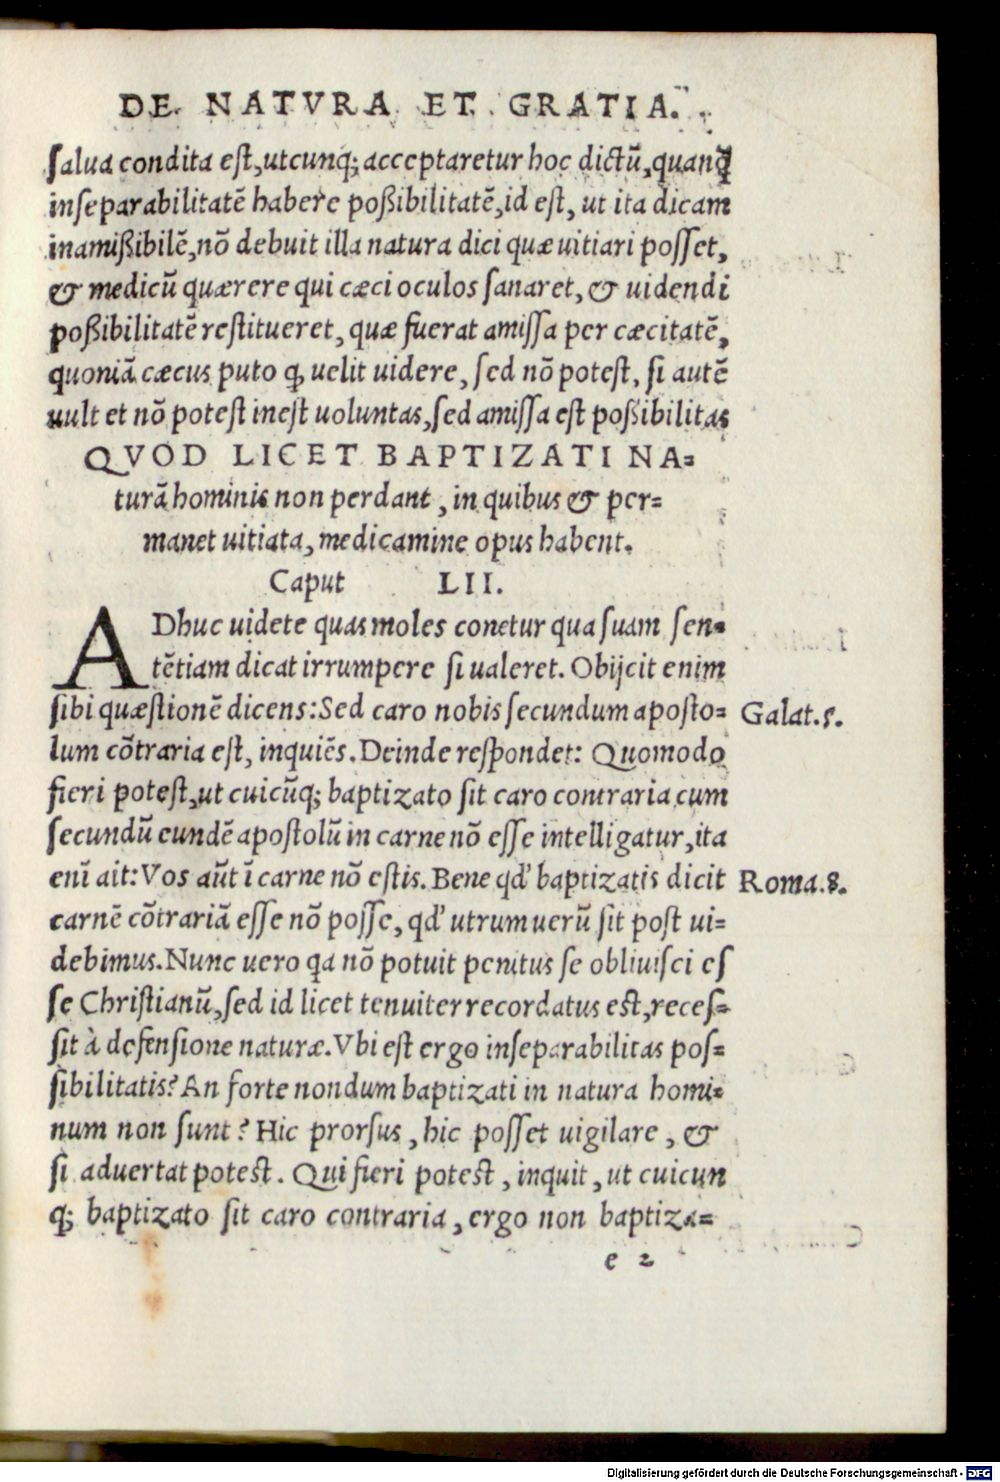 DE NATVRA ET GRATIA.
salua condita est, utcunq; acceptaretur hoc dictũ, quanq̃
inseparabilitatẽ habere poßibilitatẽ, id est, ut ita dicam
inamißibilẽ, nõ debuit illa natura dici quæ uitiari posset,
& medicũ quærere qui cæci oculos sanaret, & uidendi
poßibilitatẽ restitueret, quæ fuerat amissa per cæcitatẽ,
quoniã cæcus puto q, uelit uidere, sed nõ potest, si autẽ
uult et nõ potest inest uoluntas, sed amissa est poßibilitas
QVOD LICET BAPTIZATI NA-
turã hominis non perdant, in quibus & per-
manet uitiata, medicamine opus habent.
Caput LII.
ADhuc uidete quas moles conetur qua suam sen-
tẽtiam dicat irrumpere si ualeret. Obijcit enim
sibi quæstionẽ dicens: Sed caro nobis secundum aposto- Galat.5.
lum cõtraria est, inquiẽs. Deinde respondet: Quomodo
fieri potest, ut cuicũq; baptizato sit caro contraria cum
secundũ eundẽ apostolũ in carne nõ esse intelligatur, ita
enĩ ait: Vos aũt ĩ carne nõ estis. Bene qd' baptizatis dicit Roma.8.
carnẽ cõtrariã esse nõ posse, qd' utrum uerũ sit post ui-
debimus. Nunc uero qa nõ potuit penitus se obliuisci es
se Christianũ, sed id licet tenuiter recordatus est, reces-
sit à defensione naturæ. Vbi est ergo inseparabilitas pos-
sibilitatis? An forte nondum baptizati in natura homi-
num non sunt? Hic prorsus, hic posset uigilare, &
si aduertat potest. Qui fieri potest, inquit, ut cuicun
q; baptizato sit caro contraria, ergo non baptiza-
e 2
Digitalisierung gefördert durch die Deutsche Forschungsgemeinschaft - DFG